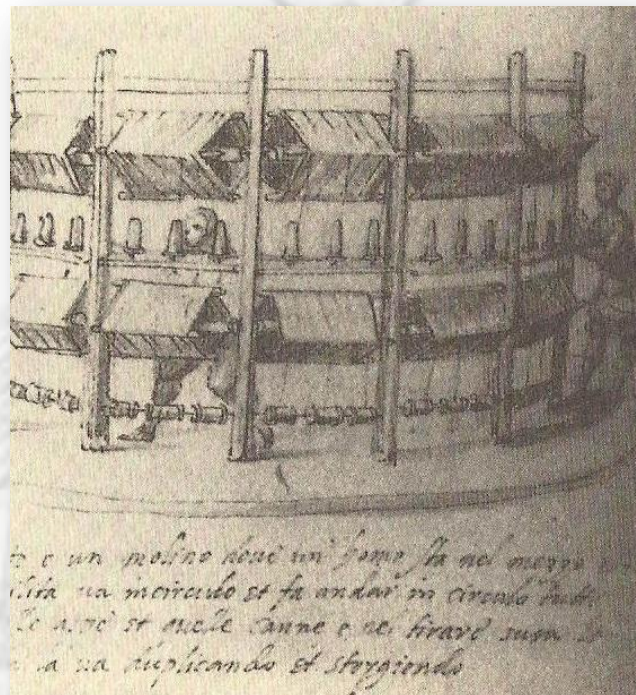 è un molino dove un homo sta nel mezzo
va incirculo et fa andar in circulo tutti
et quelle canne e nel tirare
la va duplicando et storgiendo